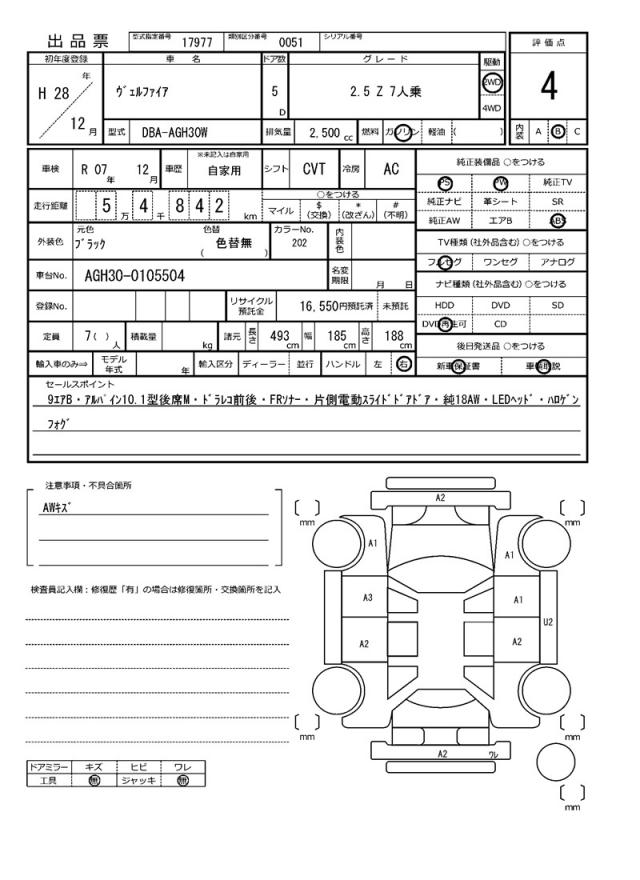 出品票
型式指定番号 17977 類別区分番号 0051 シリアル番号
初年度登録 車名 ドア数 グレード 駆動 評価点
H 28 年 12 月
ヴェルファイア 5 D 2.5 Z 7人乗 2WD 4WD 4
型式 DBA-AGH30W 排気量 2,500 cc 燃料 ガソリン 軽油 ( ) 内装 A B C
車検 R 07 年 12 月 車歴 ※未記入は自家用 自家用 シフト CVT 冷房 AC
純正装備品 ○をつける
PS PW 純正TV
純正ナビ 革シート SR
純正AW エアB ABS
走行距離 5 万 4 千 8 4 2 km ○をつける
マイル $(交換) *(改ざん) #(不明)
外装色 元色 ブラック 色替 ( 色替無 ) カラーNo. 202 内装色
TV種類 (社外品含む) ○をつける
フルセグ ワンセグ アナログ
車台No. AGH30-0105504 名変期限 月 日
ナビ種類 (社外品含む) ○をつける
HDD DVD SD
DVD再生可 CD
登録No. リサイクル預託金 16,550円預託済 未預託
定員 7( ) 人 積載量 kg 諸元 長さ 493 cm 幅 185 cm 高さ 188 cm
後日発送品 ○をつける
新車保証書 車輌取説
輸入車のみ⇒ モデル年式 年 輸入区分 ディーラー 並行 ハンドル 左 右
セールスポイント
9エアB・アルパイン10.1型後席M・ドラレコ前後・FRソナー・片側電動スライドドアドア・純18AW・LEDヘッド・ハロゲン
フォグ
注意事項・不具合箇所
AWキズ
検査員記入欄：修復歴「有」の場合は修復箇所・交換箇所を記入
A2
mm mm
A1 A1
A3 A1
U2
A2 A2
mm mm
A2 ワレ
mm
ドアミラー キズ ヒビ ワレ
工具 無 ジャッキ 無